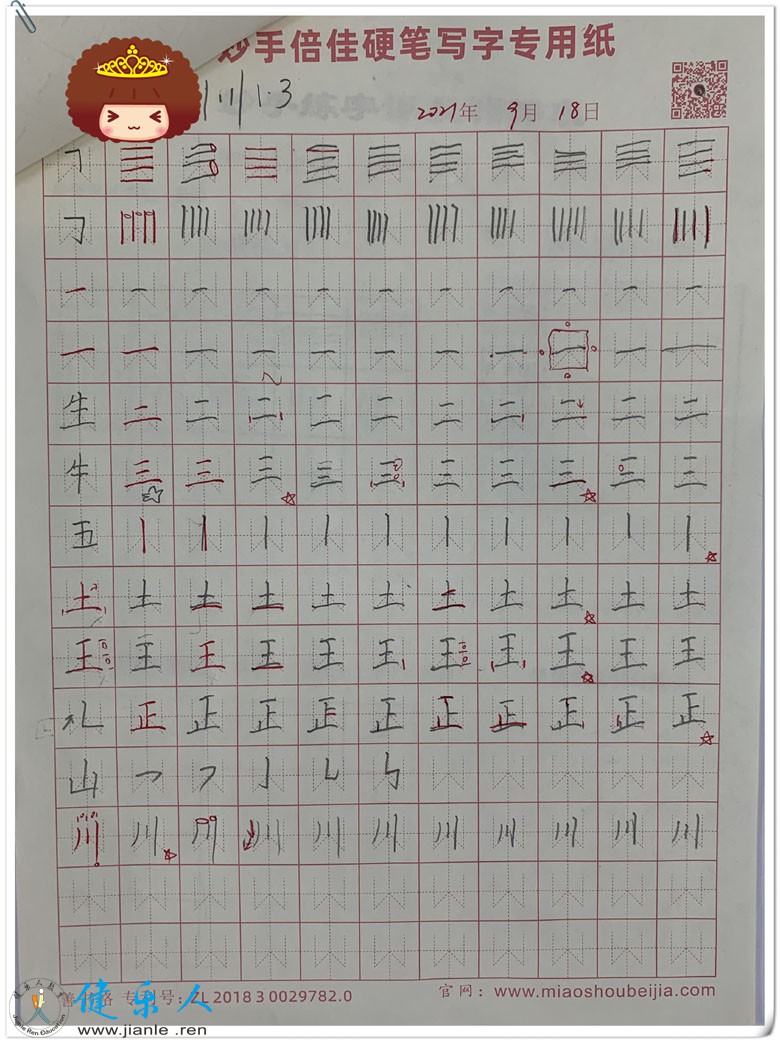 妙手倍佳硬笔写字专用纸
1.3
2021年 9月 18日
㇕ 三
㇆
一 一 一 一 一 一 一 一 一 一 一
一 一 一 一 一 一 一 一 一 一 一
生 二 二 二 二 二 二 二 二 二 二
牛 三 三 三 三 三 三 三 三 三 三
五 丨 丨 丨 丨 丨 丨 丨 丨 丨 丨
土 土 土 土 土 土 土 土 土 土 土
王 王 王 王 王 王 王 王 王 王 王
礼 正 正 正 正 正 正 正 正 正 正
山 ㇇ ㇇ 亅 ㇄ ㇉
川 川 川 川 川 川 川 川 川 川 川
专刊号：ZL 2018 3 0029782.0
官网：www.miaoshoubeijia.com
健乐人
www.jianle.ren